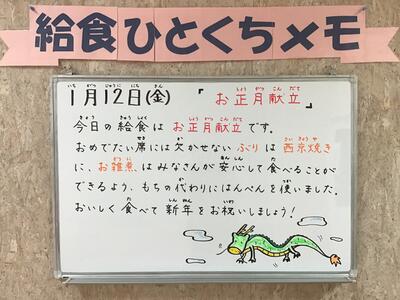 給食ひとくちメモ
1月12日(金)　「お正月献立」
今日の給食は お正月献立 です。
おめでたい席には欠かせない ぶり は 西京焼き
に、お雑煮はみなさんが安心して食べることが
できるよう、もちの代わりにはんぺんを使いました。
おいしく食べて新年をお祝いしましょう！